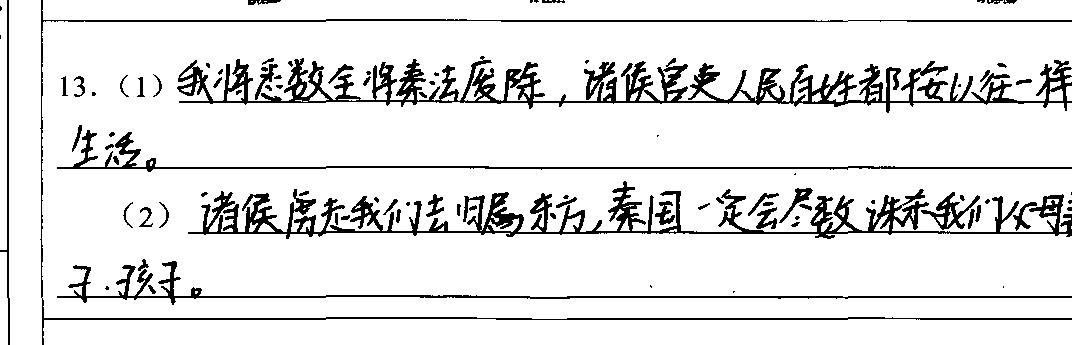 13.（1）我将悉数全将秦法废除，诸侯官吏人民百姓都按以往一样
生活。
（2）诸侯虏走我们去归属东方，秦国一定会尽数诛杀我们父母妻
子.孩子。